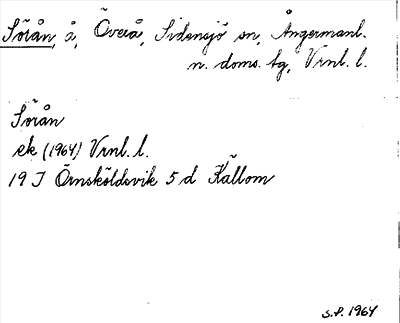 Sörån, å, Överå, Sidensjö sn, Ångermanl.
n. doms. tg, Vrnl. l.
Sörån
ek (1964) Vrnl. l.
19 J Örnsköldsvik 5 d Källom
S.P. 1964